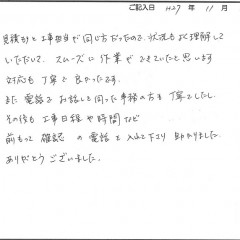 ご記入日 H27 年 11 月
見積りと工事担当が同じ方だったので、状況をよく理解して
いただいて、スムーズに作業ができていたと思います
対応も丁寧で良かったです。
また電話でお話しした事務の方も丁寧でしたし、
その後も工事日程や時間など
前もって確認の電話を入れて下さり助かりました。
ありがとうございました。